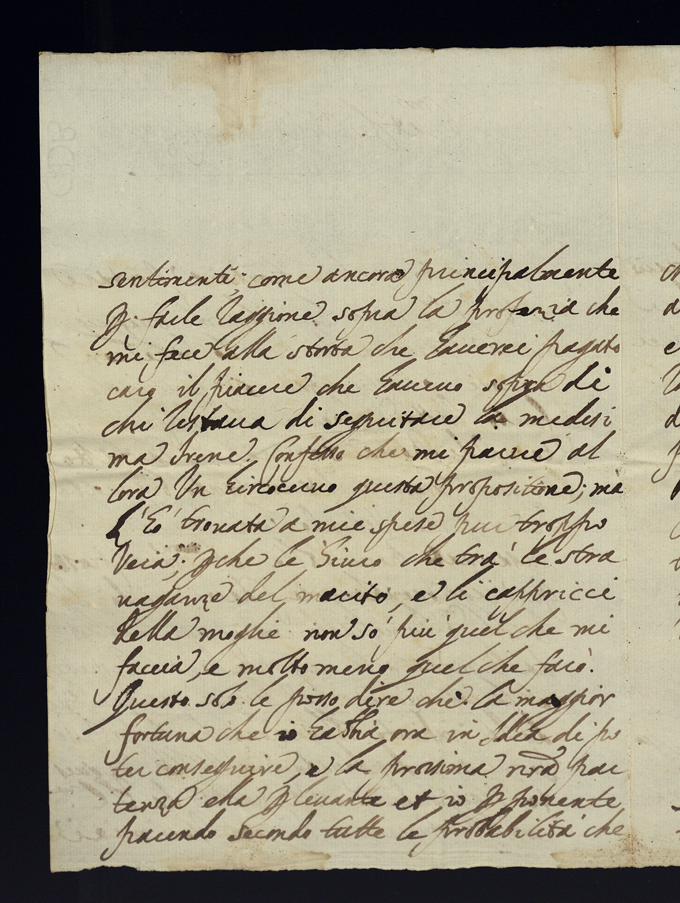 sentimenti; come ancora principalmente
p. facile raggione sopra la profezia che
mi fece alla storta che haverei pagato
caro il piacere che havevo sopra di
chi restava di seguitare la medesi
ma Irene. Confesso che mi parve al
lora Un hircocervo questa propositione; mà
L'hò trovata a mie spese pur troppo
Vera; p.che le Giuro che trà le stra
vaganze del marito, e li cappricci
della moglie non sò più quel che mi
faccia, e molto meno quel che farò.
Questo solo le posso dire che la maggior
fortuna che io habbia ora in Idea di po
ter conseguire, e la prossima nra par
tenza ella p. levante et io p. ponente
facendo secondo tutte le probabilità che